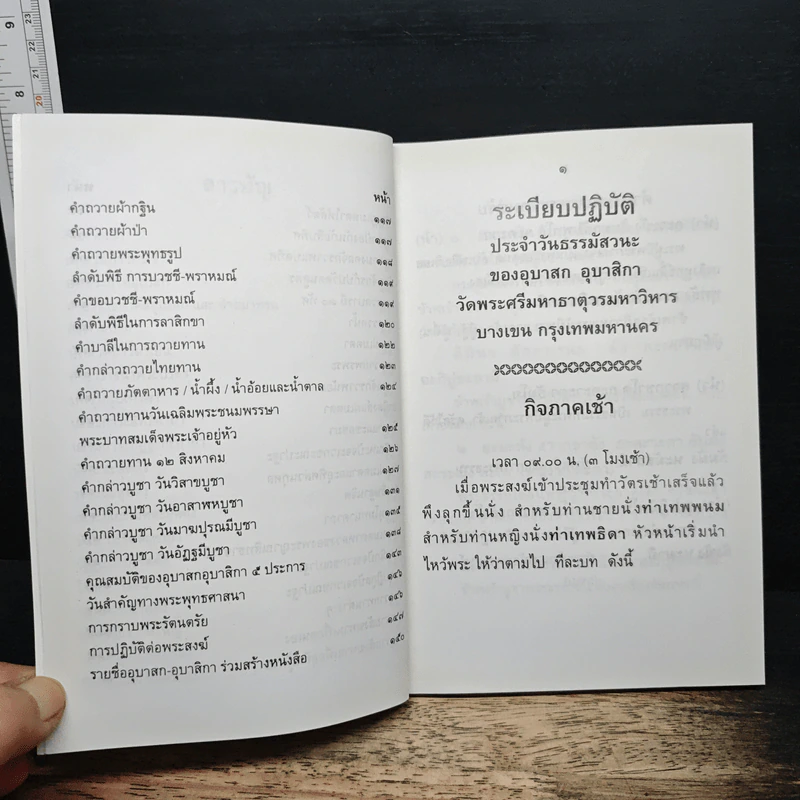 หน้า
คำถวายผ้ากฐิน ๑๑๗
คำถวายผ้าป่า ๑๑๗
คำถวายพระพุทธรูป ๑๑๘
ลำดับพิธี การบวชชี-พราหมณ์ ๑๑๙
คำขอบวชชี-พราหมณ์ ๑๑๙
ลำดับพิธีในการลาสิกขา ๑๒๐
คำบาลีในการถวายทาน ๑๒๒
คำกล่าวถวายไทยทาน ๑๒๓
คำถวายภัตตาหาร / น้ำผึ้ง / น้ำอ้อยและน้ำตาล ๑๒๔
คำถวายทานวันเฉลิมพระชนมพรรษา
พระบาทสมเด็จพระเจ้าอยู่หัว ๑๒๕
คำถวายทาน ๑๒ สิงหาคม ๑๒๖
คำกล่าวบูชา วันวิสาขบูชา ๑๒๗
คำกล่าวบูชา วันอาสาฬหบูชา ๑๓๑
คำกล่าวบูชา วันมาฆปุรณมีบูชา ๑๓๕
คำกล่าวบูชา วันอัฏฐมีบูชา ๑๓๘
คุณสมบัติของอุบาสกอุบาสิกา ๕ ประการ ๑๔๓
วันสำคัญทางพระพุทธศาสนา ๑๔๖
การกราบพระรัตนตรัย ๑๔๖
การปฏิบัติต่อพระสงฆ์ ๑๔๗
รายชื่ออุบาสก-อุบาสิกา ร่วมสร้างหนังสือ ๑๕๐
๑
ระเบียบปฏิบัติ
ประจำวันธรรมัสวนะ
ของอุบาสก อุบาสิกา
วัดพระศรีมหาธาตุวรมหาวิหาร
บางเขน กรุงเทพมหานคร
กิจภาคเช้า
เวลา ๐๙.๐๐ น. (๓ โมงเช้า)
เมื่อพระสงฆ์เข้าประชุมทำวัตรเช้าเสร็จแล้ว
พึงลุกขึ้นนั่ง สำหรับท่านชายนั่งท่าเทพพนม
สำหรับท่านหญิงนั่งท่าเทพธิดา หัวหน้าเริ่มนำ
ไหว้พระ ให้ว่าตามไป ทีละบท ดังนี้
9
8
23
22
21
20